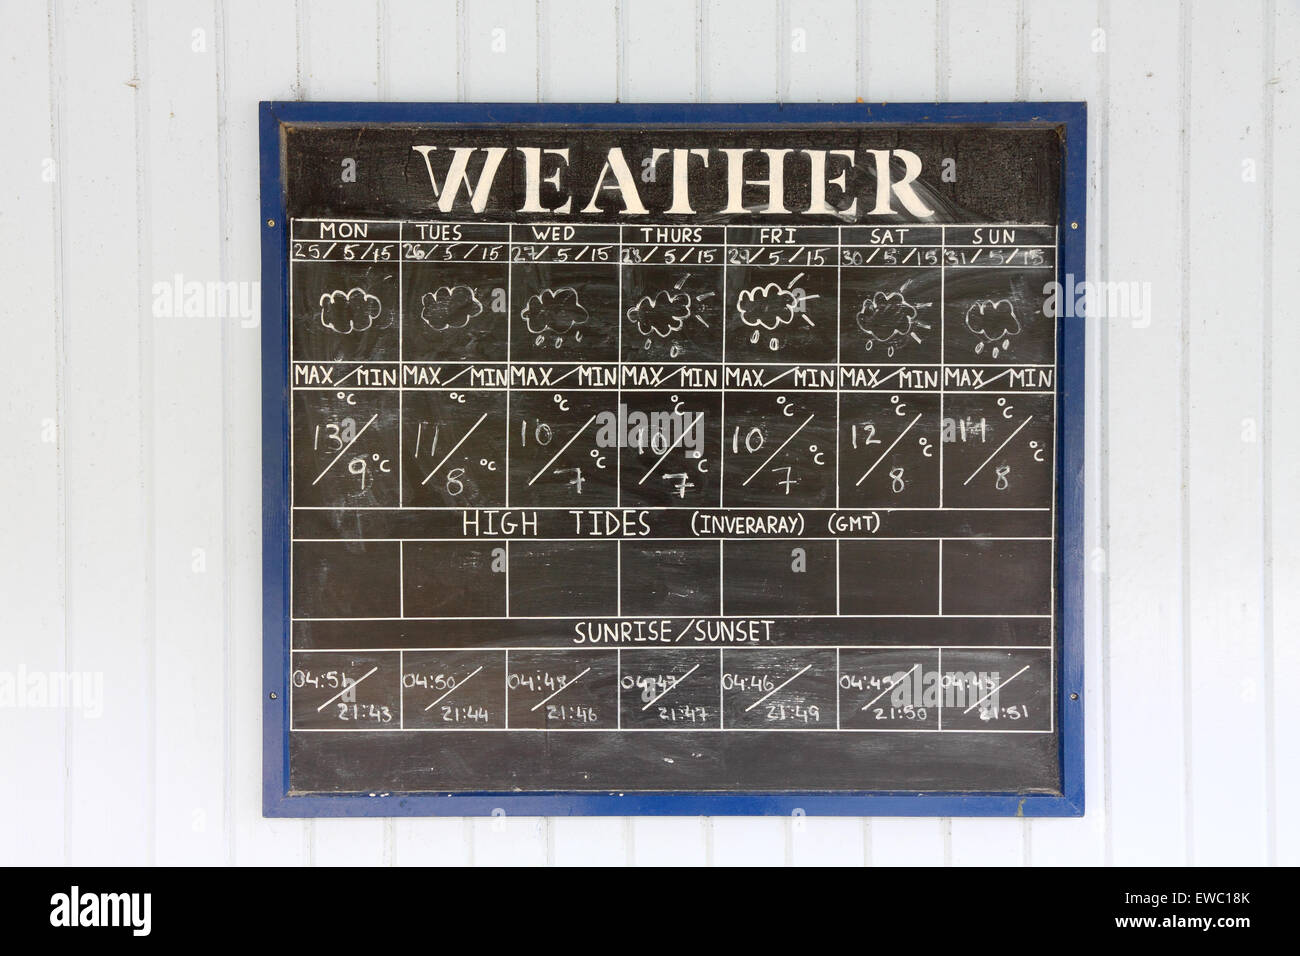 WEATHER
MON TUES WED THURS FRI SAT SUN
25/5/15 26/5/15 27/5/15 28/5/15 29/5/15 30/5/15 31/5/15
MAX/MIN MAX/MIN MAX/MIN MAX/MIN MAX/MIN MAX/MIN MAX/MIN
°C °C °C °C °C °C °C
13 11 10 10 10 12 11
9°C 8°C 7°C 7°C 7°C 8°C 8°C
HIGH TIDES (INVERARAY) (GMT)
SUNRISE/SUNSET
04:51 04:50 04:48 04:47 04:46 04:45 04:45
21:43 21:44 21:46 21:47 21:49 21:50 21:51
alamy stock photo
alamy
Image ID: EWC18K
www.alamy.com